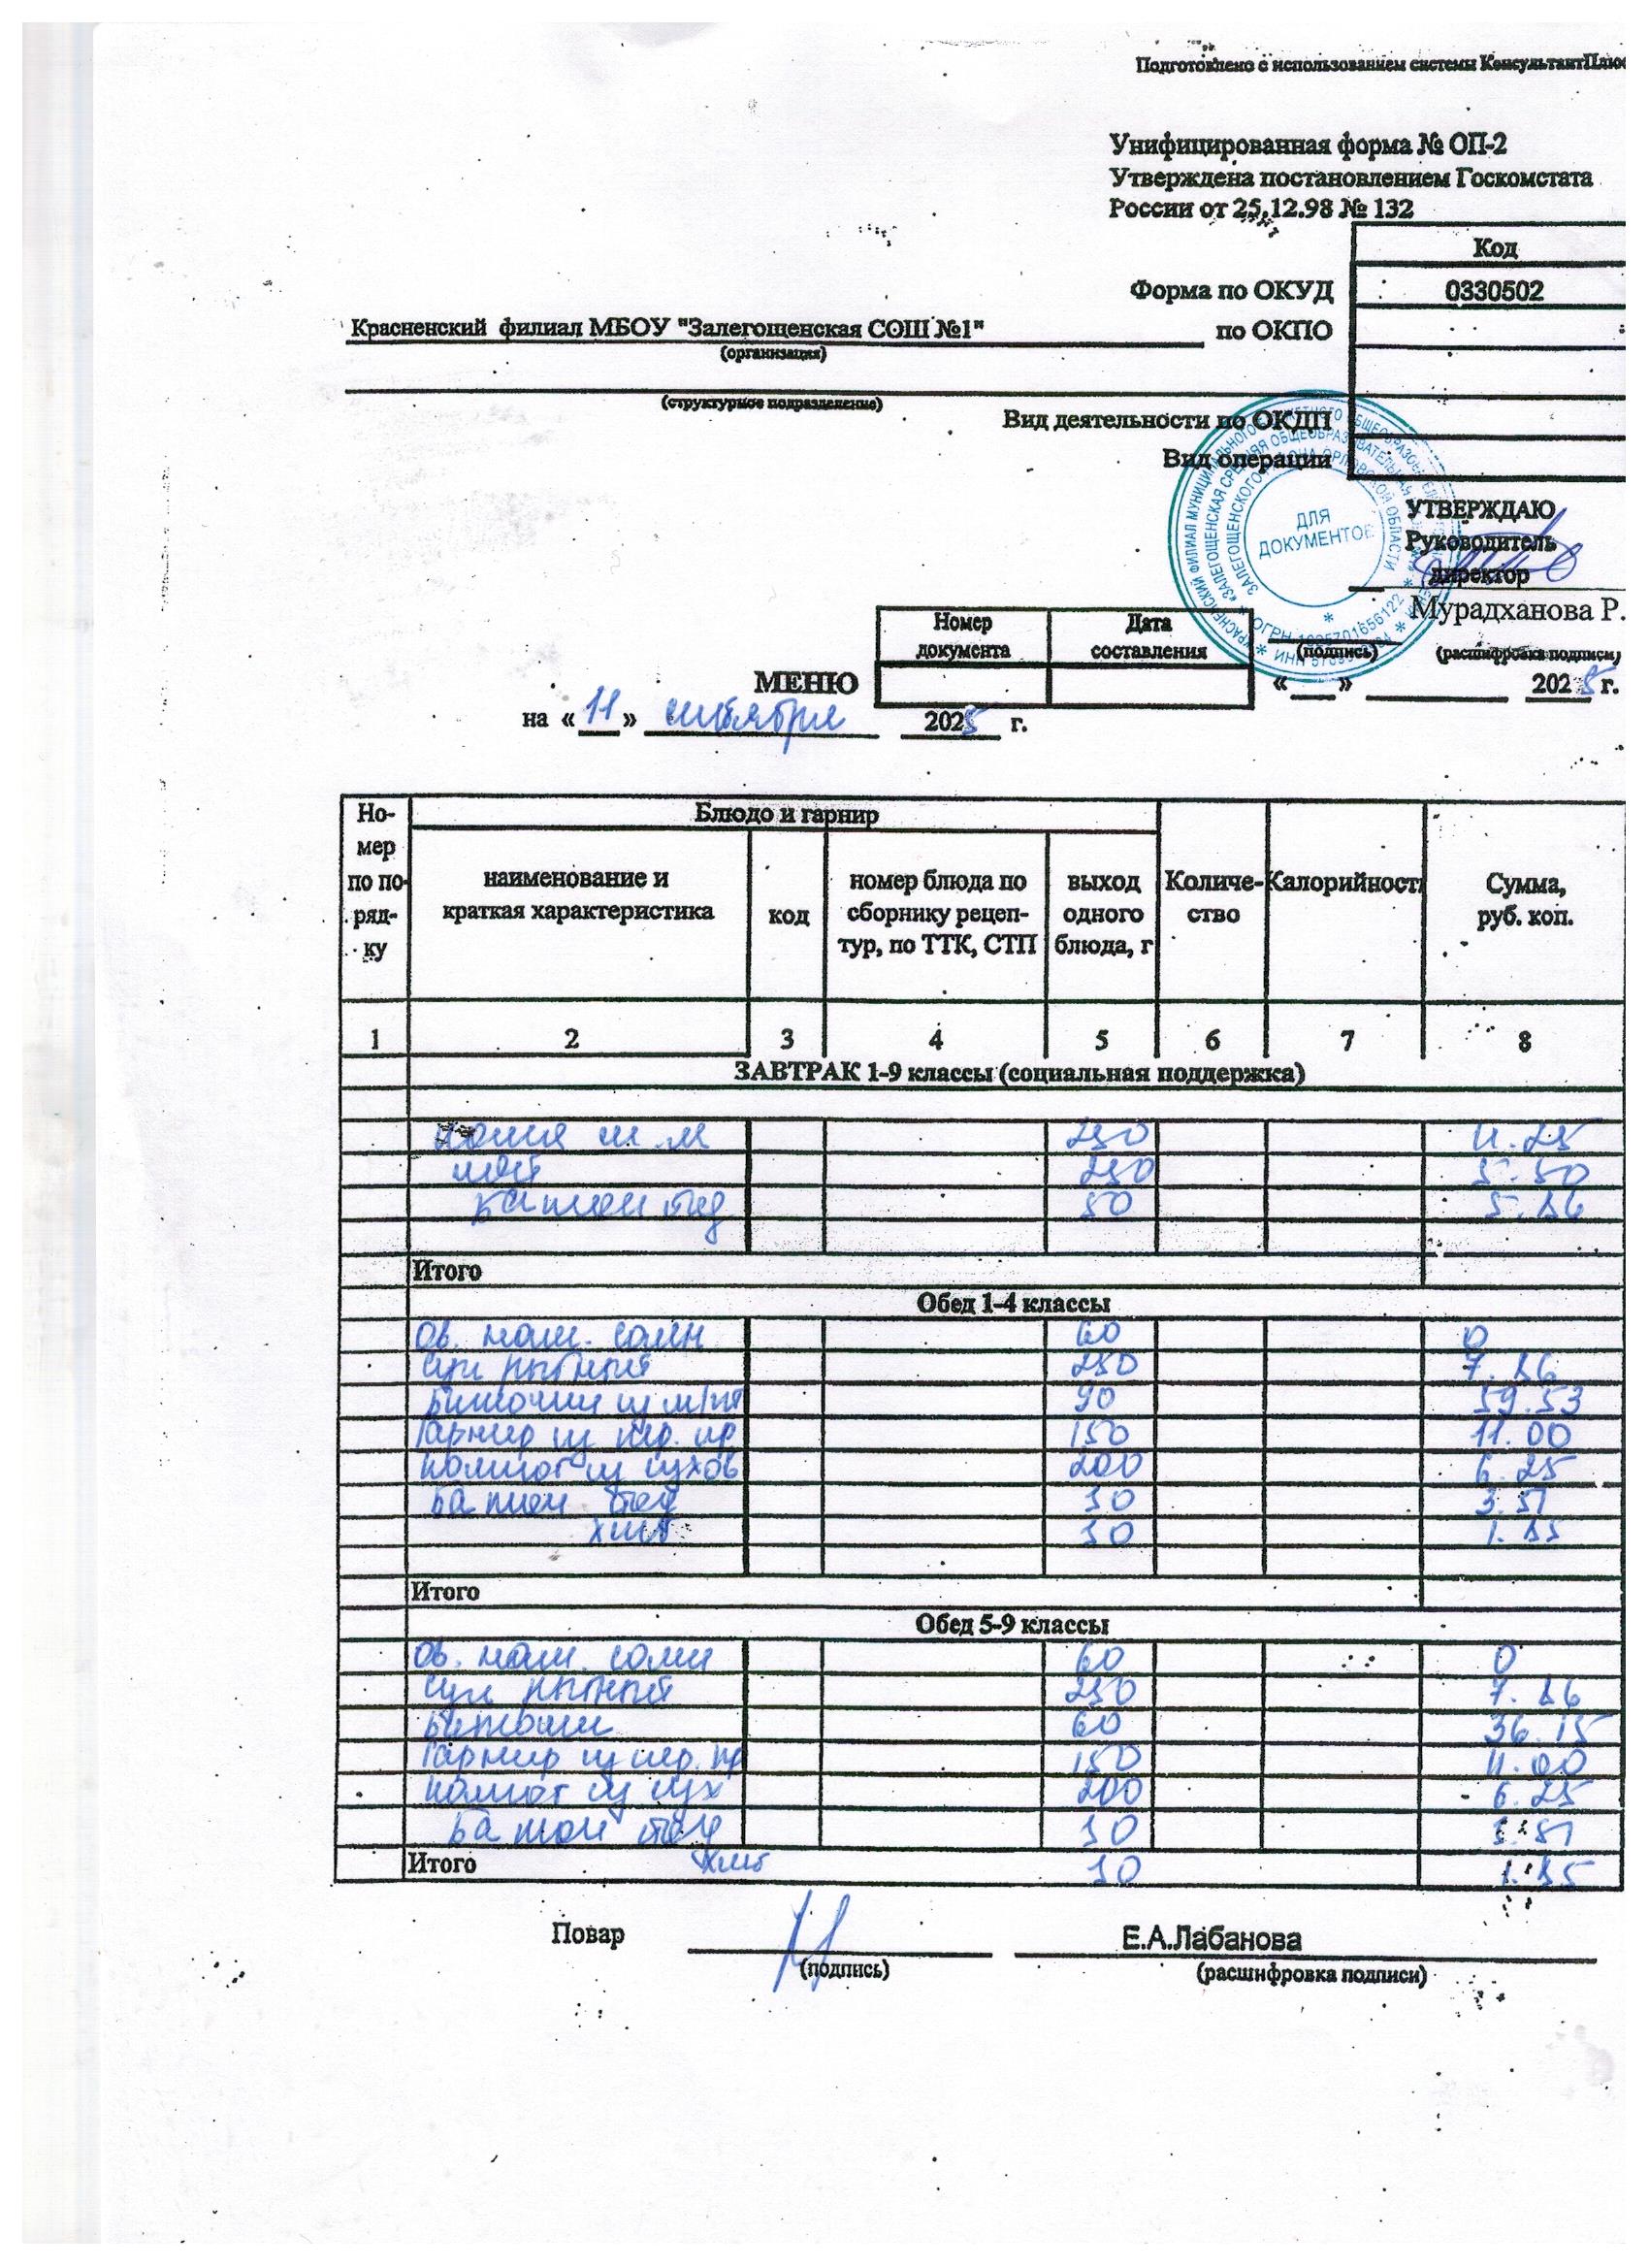 Подготовлено с использованием системы КонсультантПлюс
Унифицированная форма № ОП-2
Утверждена постановлением Госкомстата
России от 25.12.98 № 132
Код
Форма по ОКУД 0330502
Красненский филиал МБОУ "Залегощенская СОШ №1" по ОКПО
(организация)
(структурное подразделение)
Вид деятельности по ОКДП
Вид операции
ДЛЯ
ДОКУМЕНТОВ
УТВЕРЖДАЮ
Руководитель
директор
Мурадханова Р.
(подпись) (расшифровка подписи)
Номер документа Дата составления
МЕНЮ « » 2025 г.
на « 11 » сентября 2025 г.
Но-мер по по-ряд-ку Блюдо и гарнир
наименование и краткая характеристика код номер блюда по сборнику рецеп-тур, по ТТК, СТП выход одного блюда, г Количе-ство Калорийность Сумма, руб. коп.
1 2 3 4 5 6 7 8
ЗАВТРАК 1-9 классы (социальная поддержка)
250
250 5.50
батон 50 5.86
Итого
Обед 1-4 классы
Ов. 60 0
суп 250 7.86
биточки из 90 59.53
Гарнир из 150 11.00
компот из сухов 200 6.25
батон 30 3.51
хлеб 30 1.85
Итого
Обед 5-9 классы
Ов. 60 0
суп 250 7.86
биточки 60 36.15
Гарнир из 150 11.00
компот из сух 200 6.25
батон 30 3.51
Итого хлеб 30 1.85
Повар Е.А.Лабанова
(подпись) (расшифровка подписи)